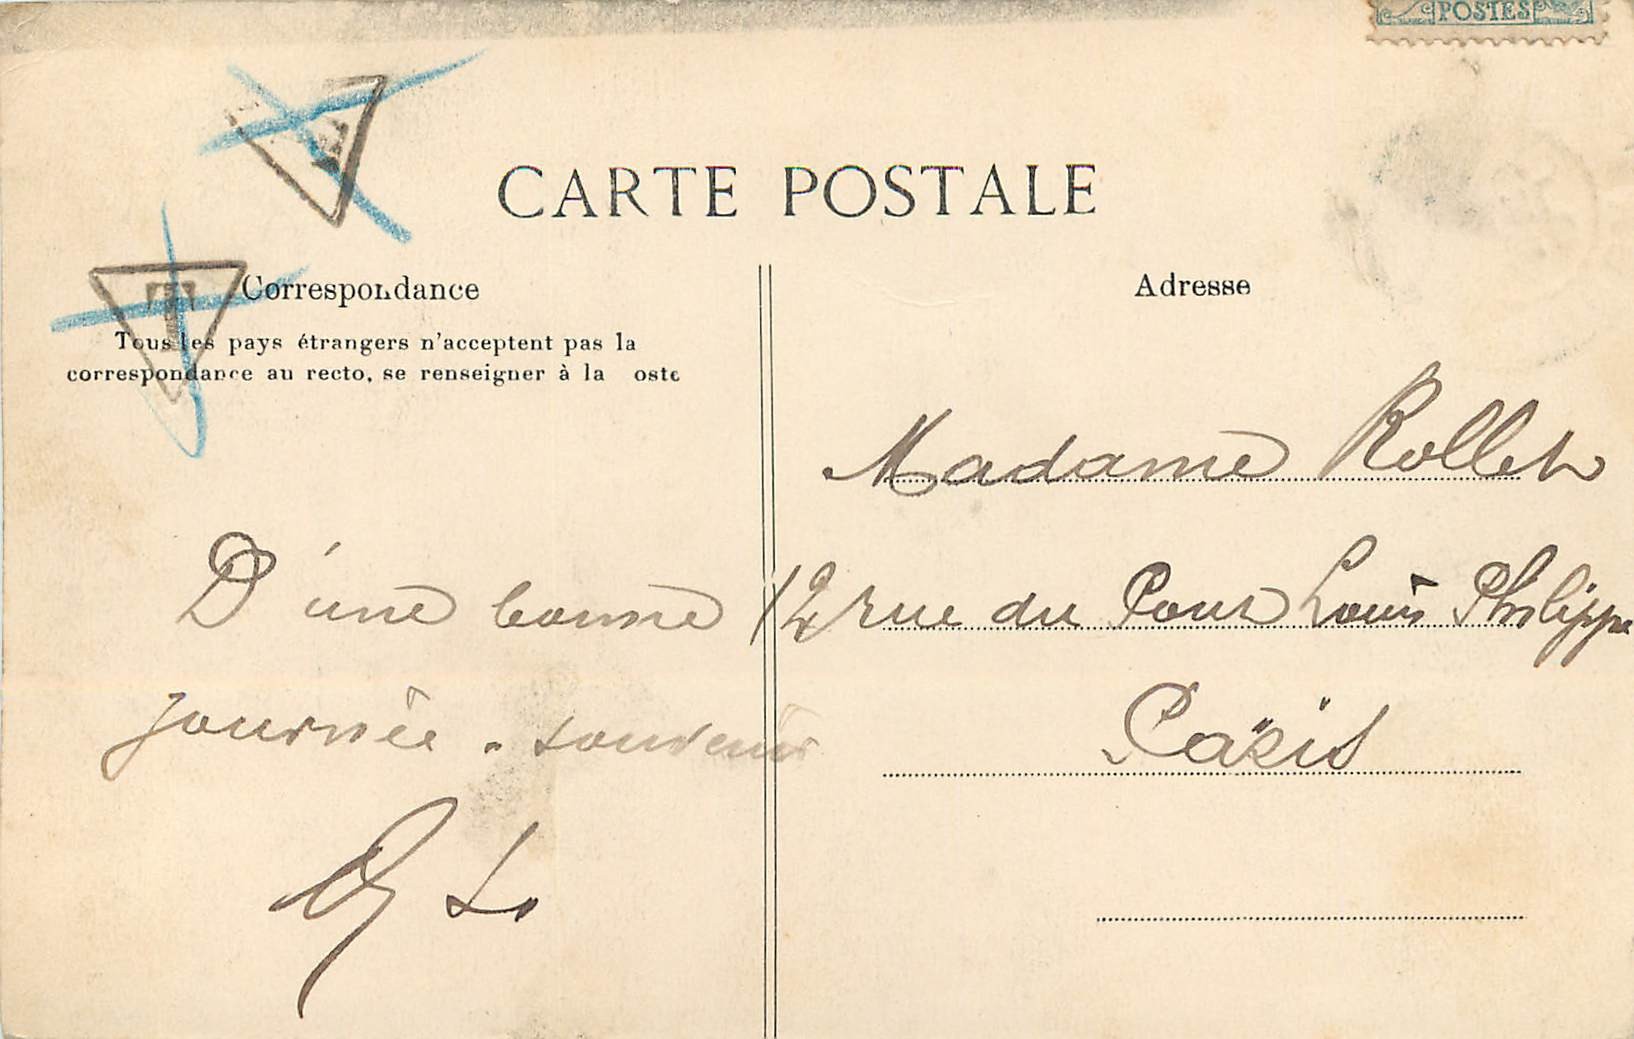 POSTES
T
CARTE POSTALE
T
Correspondance
Adresse
Tous les pays étrangers n'acceptent pas la
correspondance au recto, se renseigner à la oste
Madame Rollet
12 rue du Pont Louis Philippe
Paris
D'une bonne
journée. souvenir